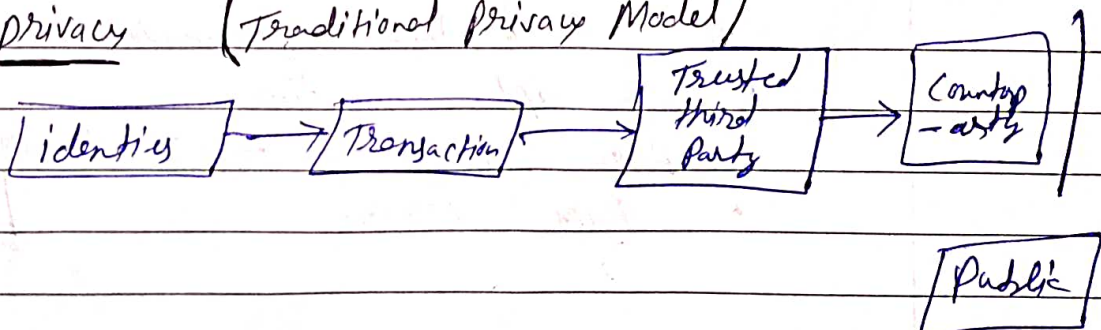 privacy (Traditional Privacy Model)
identies
Transaction
Trusted
third
Party
Countrp
-arty
Public